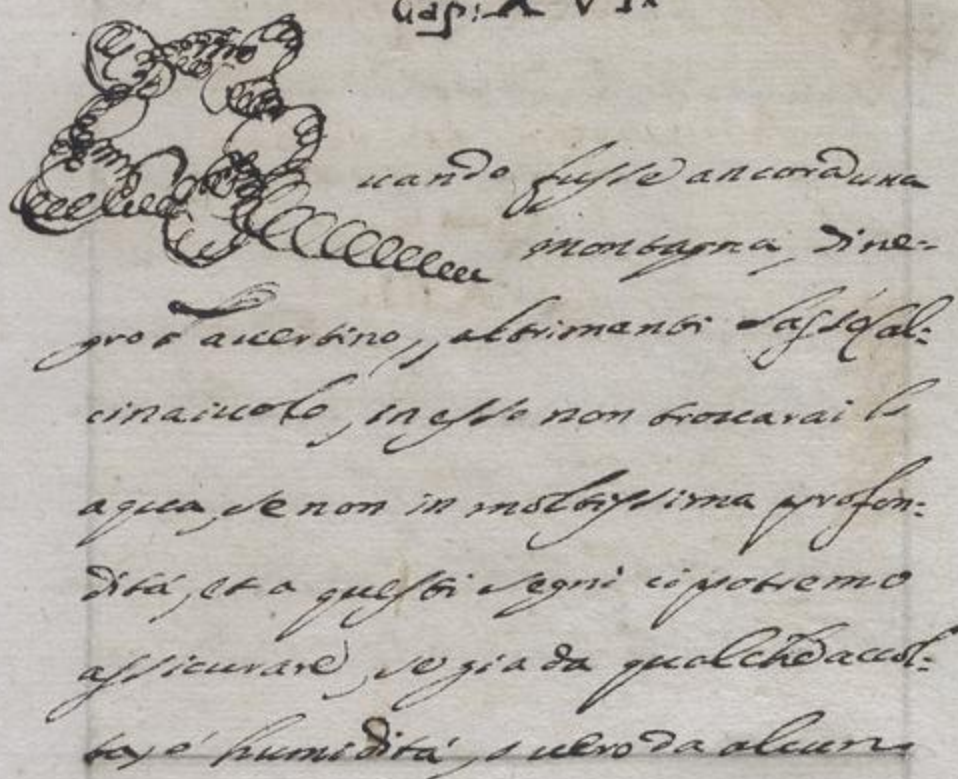 Cap: X V I
Quando fusse ancora una
montagna di ne=
gro Tauertino, altrimenti Sasso Cal=
cinaiuolo, in esso non trouarai l
aqua, se non in moltissima profon=
dità, et a questi segni ci potremo
assicurare, se gia da qualche accol=
ta, é humidità, o uero da alcun